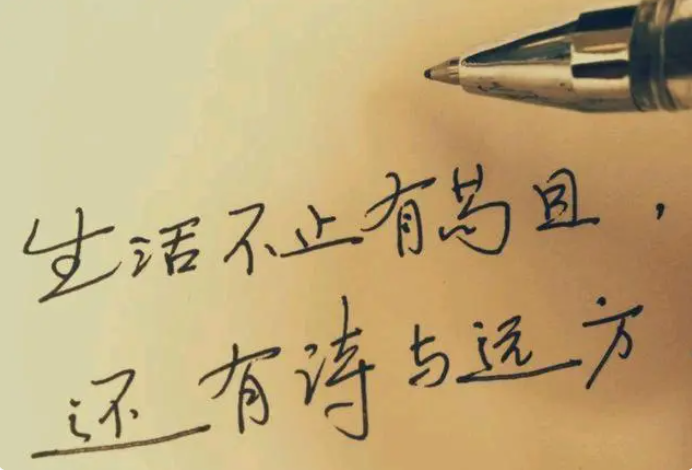 生活不止有苟且，
还有诗与远方